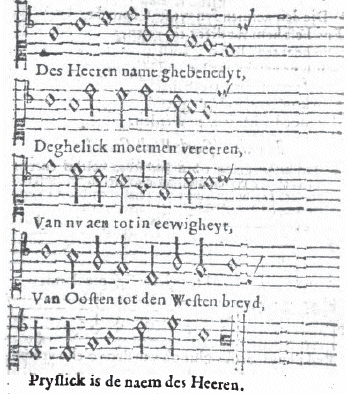 Des Heeren name ghebenedyt,
Deghelick moetmen vereeren,
Van nv aen tot in eewigheyt,
Van Ooſten tot den Weſten breyd,
Pryſlick is de naem des Heeren.